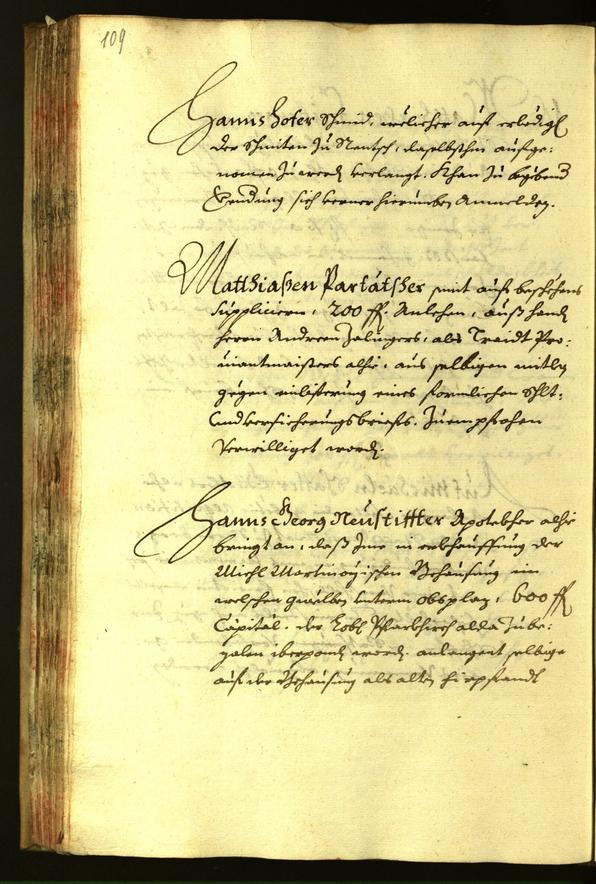 109
Hanns Hofer Schmid, welicher auf erledigt
der Schmiten zu Rentsch, daselbsthin aufge:
nomen zu werd(en) verlangt. Khan zu begebend(er)
Endung sich verner hierumben Anmelden.
Matthiaßen Partätscher sint auf beschehens
Suppliciern, 200 fl. Anlehen, auß hand(en)
Herrn Andreen Zalingers, als Traidt Pro:
viantmaisters alhie, aus selbigen mitln
gegen einlifferung eines formlichen Schlt:
und versicherungsbriefs. Zuempfahen
Verwilliget word(en).
Hanns Georg Neustiffter Apotekher alhie
bringt an, daß Ime in erkhauffung der
Michl Martinoyischen Behausung im
welschen gwelben unterm obsplaz, 600 fl.
Capital. der Lobl. Pfarrkirch alda zube:
zalen iberpund(en) word(en). anlangent selbige
auf der Behausung als alten hierpfandt